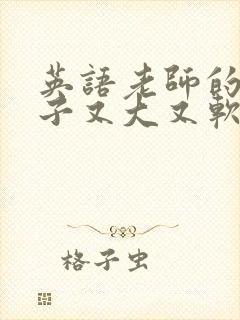 英語老師的
子又大又軟
格子虫